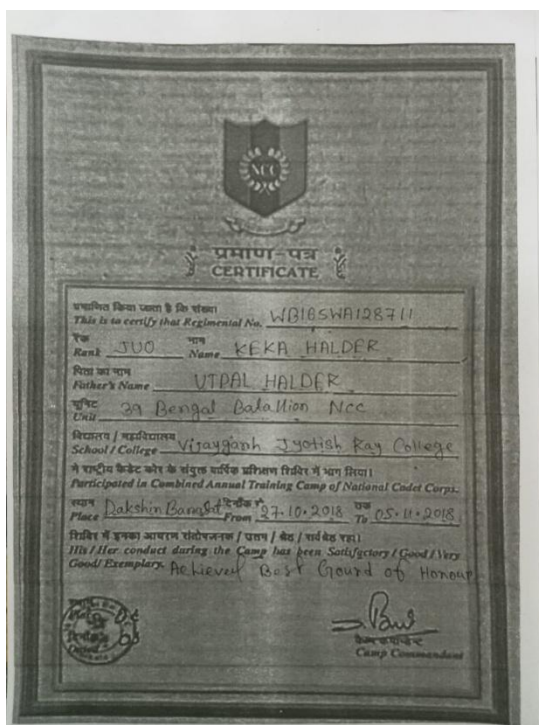 NCC
प्रमाण-पत्र
CERTIFICATE
प्रमाणित किया जाता है कि संख्या
This is to certify that Regimental No. WB16SWA128711
रैंक नाम
Rank JUO Name KEKA HALDER
पिता का नाम
Father's Name UTPAL HALDER
यूनिट
Unit 39 Bengal Batallion Ncc
विद्यालय / महाविद्यालय
School / College Vijaygarh Jyotish Ray College
ने राष्ट्रीय कैडेट कोर के संयुक्त वार्षिक प्रशिक्षण शिविर में भाग लिया।
Participated in Combined Annual Training Camp of National Cadet Corps.
स्थान दिनाँक से एक
Place Dakshin Barasat From 27.10.2018 To 05.11.2018
शिविर में इनका आचरण संतोषजनक / उत्तम / श्रेष्ठ / सर्वश्रेष्ठ रहा।
His / Her conduct during the Camp has been Satisfactory / Good / Very
Good / Exemplary. Achieved Best Gourd of Honour
कैम्प कमांडेंट
Camp Commandant